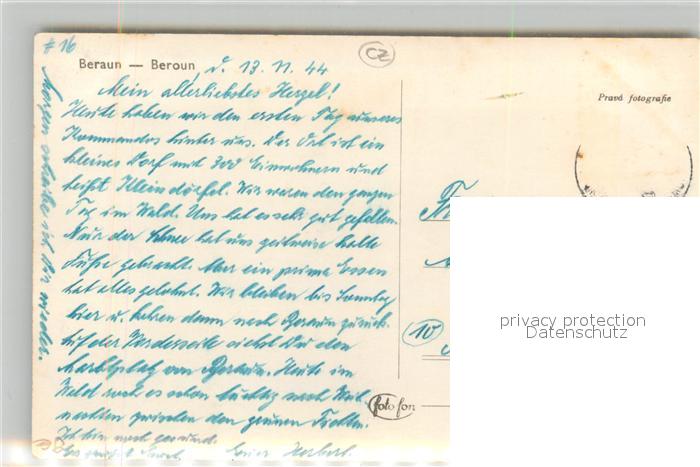 # 16
CZ
Beraun — Beroun d. 13. 11. 44
Mein allerliebstes Herzel!
Heute haben wir den ersten Tag unseres
Kommandos hinter uns. Der Ort ist ein
kleines Dorf mit 300 Einwohnern und
heißt Kleindörfel. Wir waren den ganzen
Tag im Wald. Uns hat es sehr gut gefallen.
Nur der Schnee hat uns zeitweise kalte
Füße gebracht. Aber ein prima Essen
hat alles gelohnt. Wir bleiben bis Sonntag
hier u. kehren dann nach Beraun zurück.
Auf der Vorderseite siehst Du den
Marktplatz von Beraun. Heute im
Wald roch es schon tüchtig nach Weih-
nachten zwischen den grünen Fichten.
Ich bin noch gesund.
Es grüßt Euer Herbert.
Morgen schreibe ich Dir wieder.
Pravá fotografie
10
foto fon
privacy protection
Datenschutz